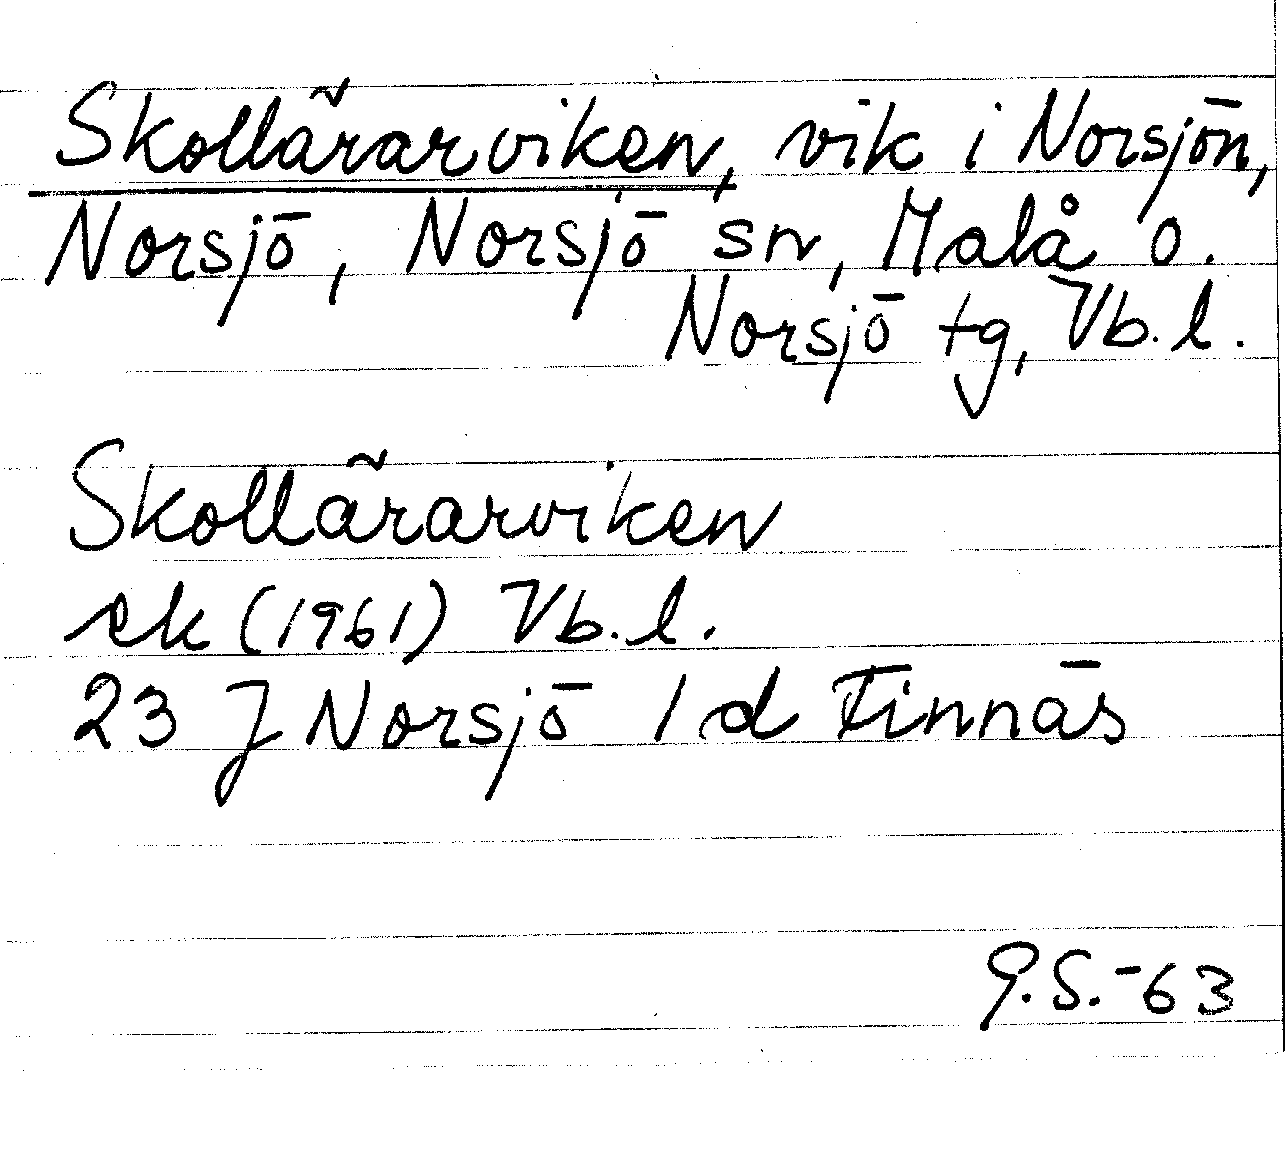 Skollärarviken, vik i Norsjön,
Norsjö, Norsjö sn, Malå o.
Norsjö tg, Vb. l.
Skollärarviken
ek (1961) Vb. l.
23 J Norsjö 1 d Finnäs
G.S.-63